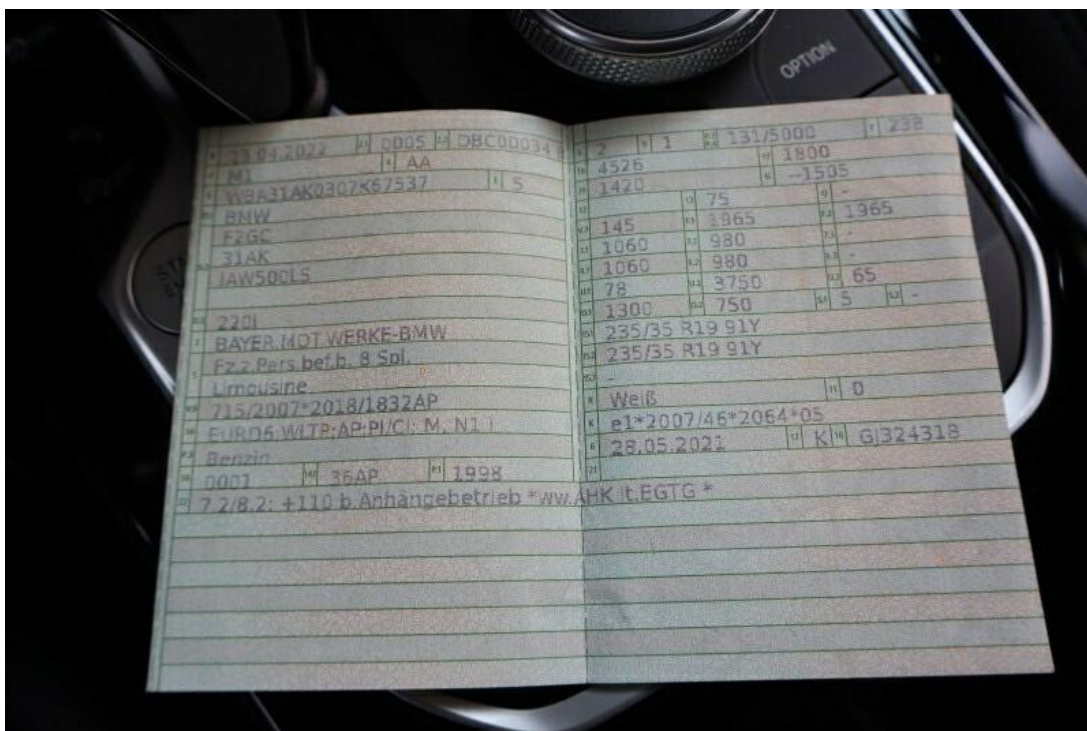 OPTION
13.04.2022 0005 DBC00034
M1 AA
WBA31AK0307K67537 5
BMW
F2GC
31AK
IAW500LS
220I
BAYER.MOT.WERKE-BMW
Fz.z.Pers.bef.b. 8 Spl.
Limousine
715/2007*2018/1832AP
EURO6;WLTP;AP;PI/CI; M, N1 I
Benzin
0001 36AP 1998
7.2/8.2: +110 b.Anhängebetrieb *ww.AHK lt.EGTG *
2 1 131/5000 238
4526 1800
1420 --1505
75 -
145 1965 1965
1060 980 -
1060 980 -
78 3750 65
1300 750 5 -
235/35 R19 91Y
235/35 R19 91Y
-
Weiß 0
e1*2007/46*2064*05
28.05.2021 K GJ324318